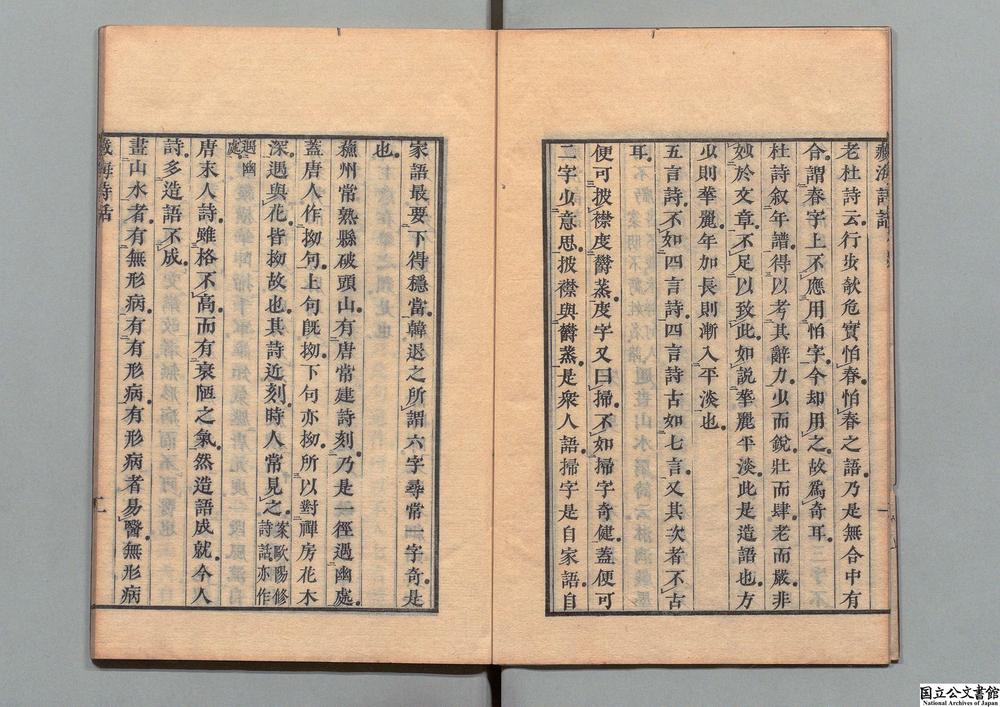 老杜詩云行步欹危實怕春怕春之語乃是無合中有
合謂春字上不應用怕字今却用之故爲奇耳
杜詩叙年譜得以考其辭力少而銳壯而肆老而嚴非
妙於文章不足以致此如說華麗平淡此是造語也方
少則華麗年加長則漸入平淡也
五言詩不如四言詩四言詩古如七言又其次者不古
耳
便可披襟度欝蒸度字又曰掃不如掃字奇健蓋便可
二字少意思披襟與欝蒸是衆人語掃字是自家語自
家語最要下得穩當韓退之所謂六字尋常一字奇是
也
蘓州常熟縣破頭山有唐常建詩刻乃是一徑遇幽處
蓋唐人作拗句上句旣拗下句亦拗所以對禪房花木
深遇與花皆拗故也其詩近刻時人常見之案歐陽修詩話亦作
遇幽處
唐末人詩雖格不高而有衰陋之氣然造語成就今人
詩多造語不成
畫山水者有無形病有有形病有形病者易醫無形病
藏海詩話
二
国立公文書館
National Archives of Japan